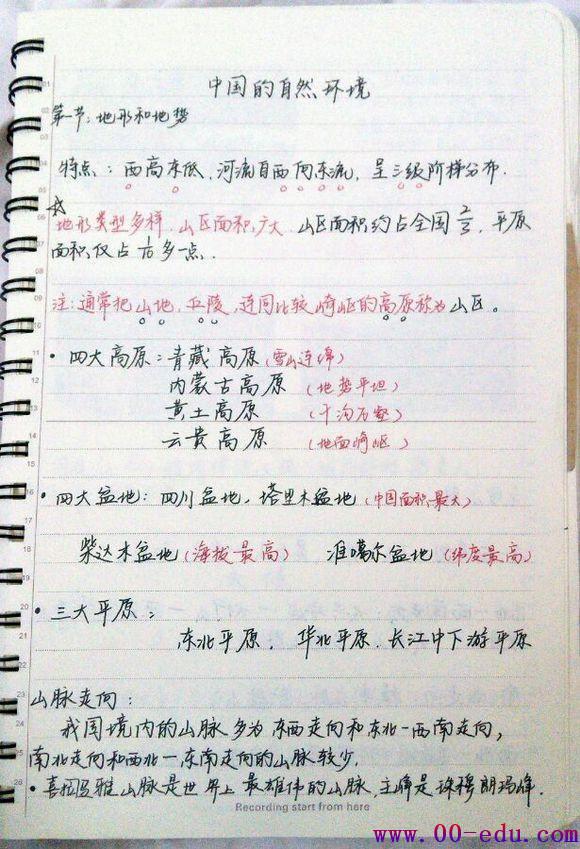 中国的自然环境
第一节:地形和地势
特点:西高东低,河流自西向东流,呈三级阶梯分布.
☆
地形类型多样,山区面积广大.山区面积约占全国2/3,平原
面积仅占1/10多一点.
注:通常把山地,丘陵,连同比较崎岖的高原称为山区。
·四大高原:青藏高原(雪山连绵)
内蒙古高原(地势平坦)
黄土高原(千沟万壑)
云贵高原(地面崎岖)
·四大盆地:四川盆地,塔里木盆地(中国面积最大)
柴达木盆地(海拔最高) 准噶尔盆地(纬度最高)
·三大平原:
东北平原,华北平原.长江中下游平原
山脉走向:
我国境内的山脉多为东西走向和东北-西南走向,
南北走向和西北-东南走向的山脉较少.
·喜拉雅山脉是世界上最雄伟的山脉,主峰是珠穆朗玛峰.
Recording start from here
www.00-edu.com